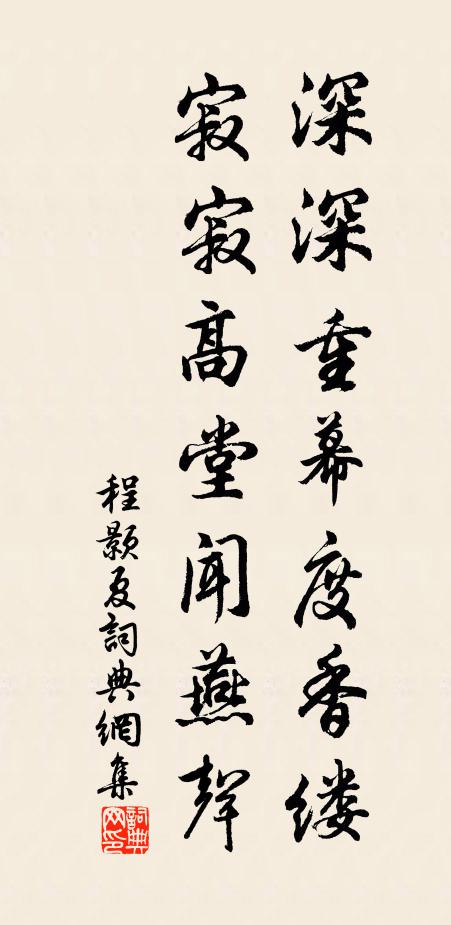 深深重幕度香缕
寂寂高堂闻燕聲
程颢夏詞典網集
詞典網印